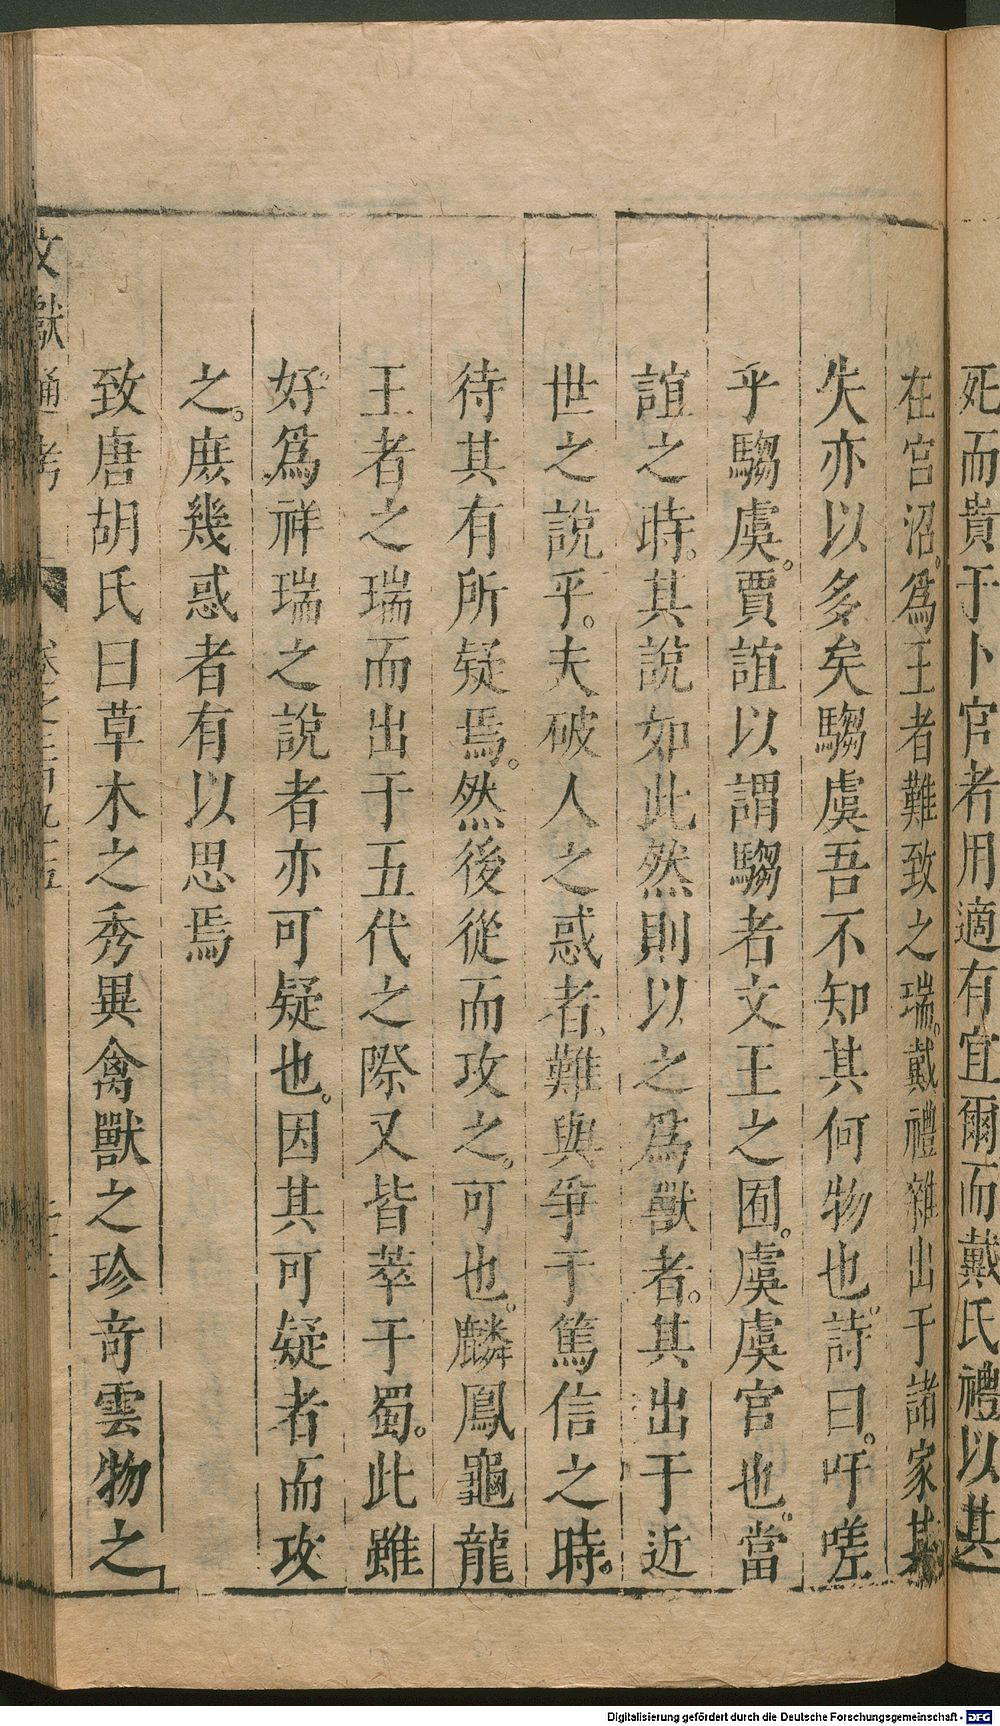 死而貴于卜官者用適有宜爾而戴氏禮以其
在宮沼。爲王者難致之瑞。戴禮雜出于諸家其
失亦以多矣騶虞吾不知其何物也。詩曰。吁嗟
乎騶虞。賈誼以謂騶者文王之囿。虞虞官也。當
誼之時。其說如此然則以之爲獸者。其出于近
世之說乎。夫破人之惑者、難與爭于篤信之時。
待其有所疑焉。然後從而攻之。可也。麟鳳龜龍
王者之瑞而出于五代之際又皆萃于蜀。此雖
好爲祥瑞之說者亦可疑也。因其可疑者而攻
之。庶幾惑者有以思焉
致唐胡氏曰草木之秀異禽獸之珍奇雲物之
文獻通考
Digitalisierung gefördert durch die Deutsche Forschungsgemeinschaft - DFG